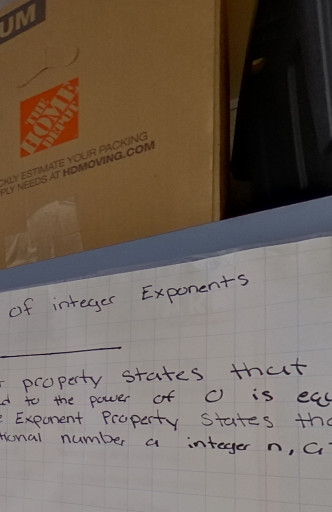 UM
THE
HOME
DEPOT
ESTIMATE YOUR PACKING
NEEDS AT HDMOVING.COM
of integer Exponents
property states that
to the power of 0 is
Exponent Property States
number a integer n,